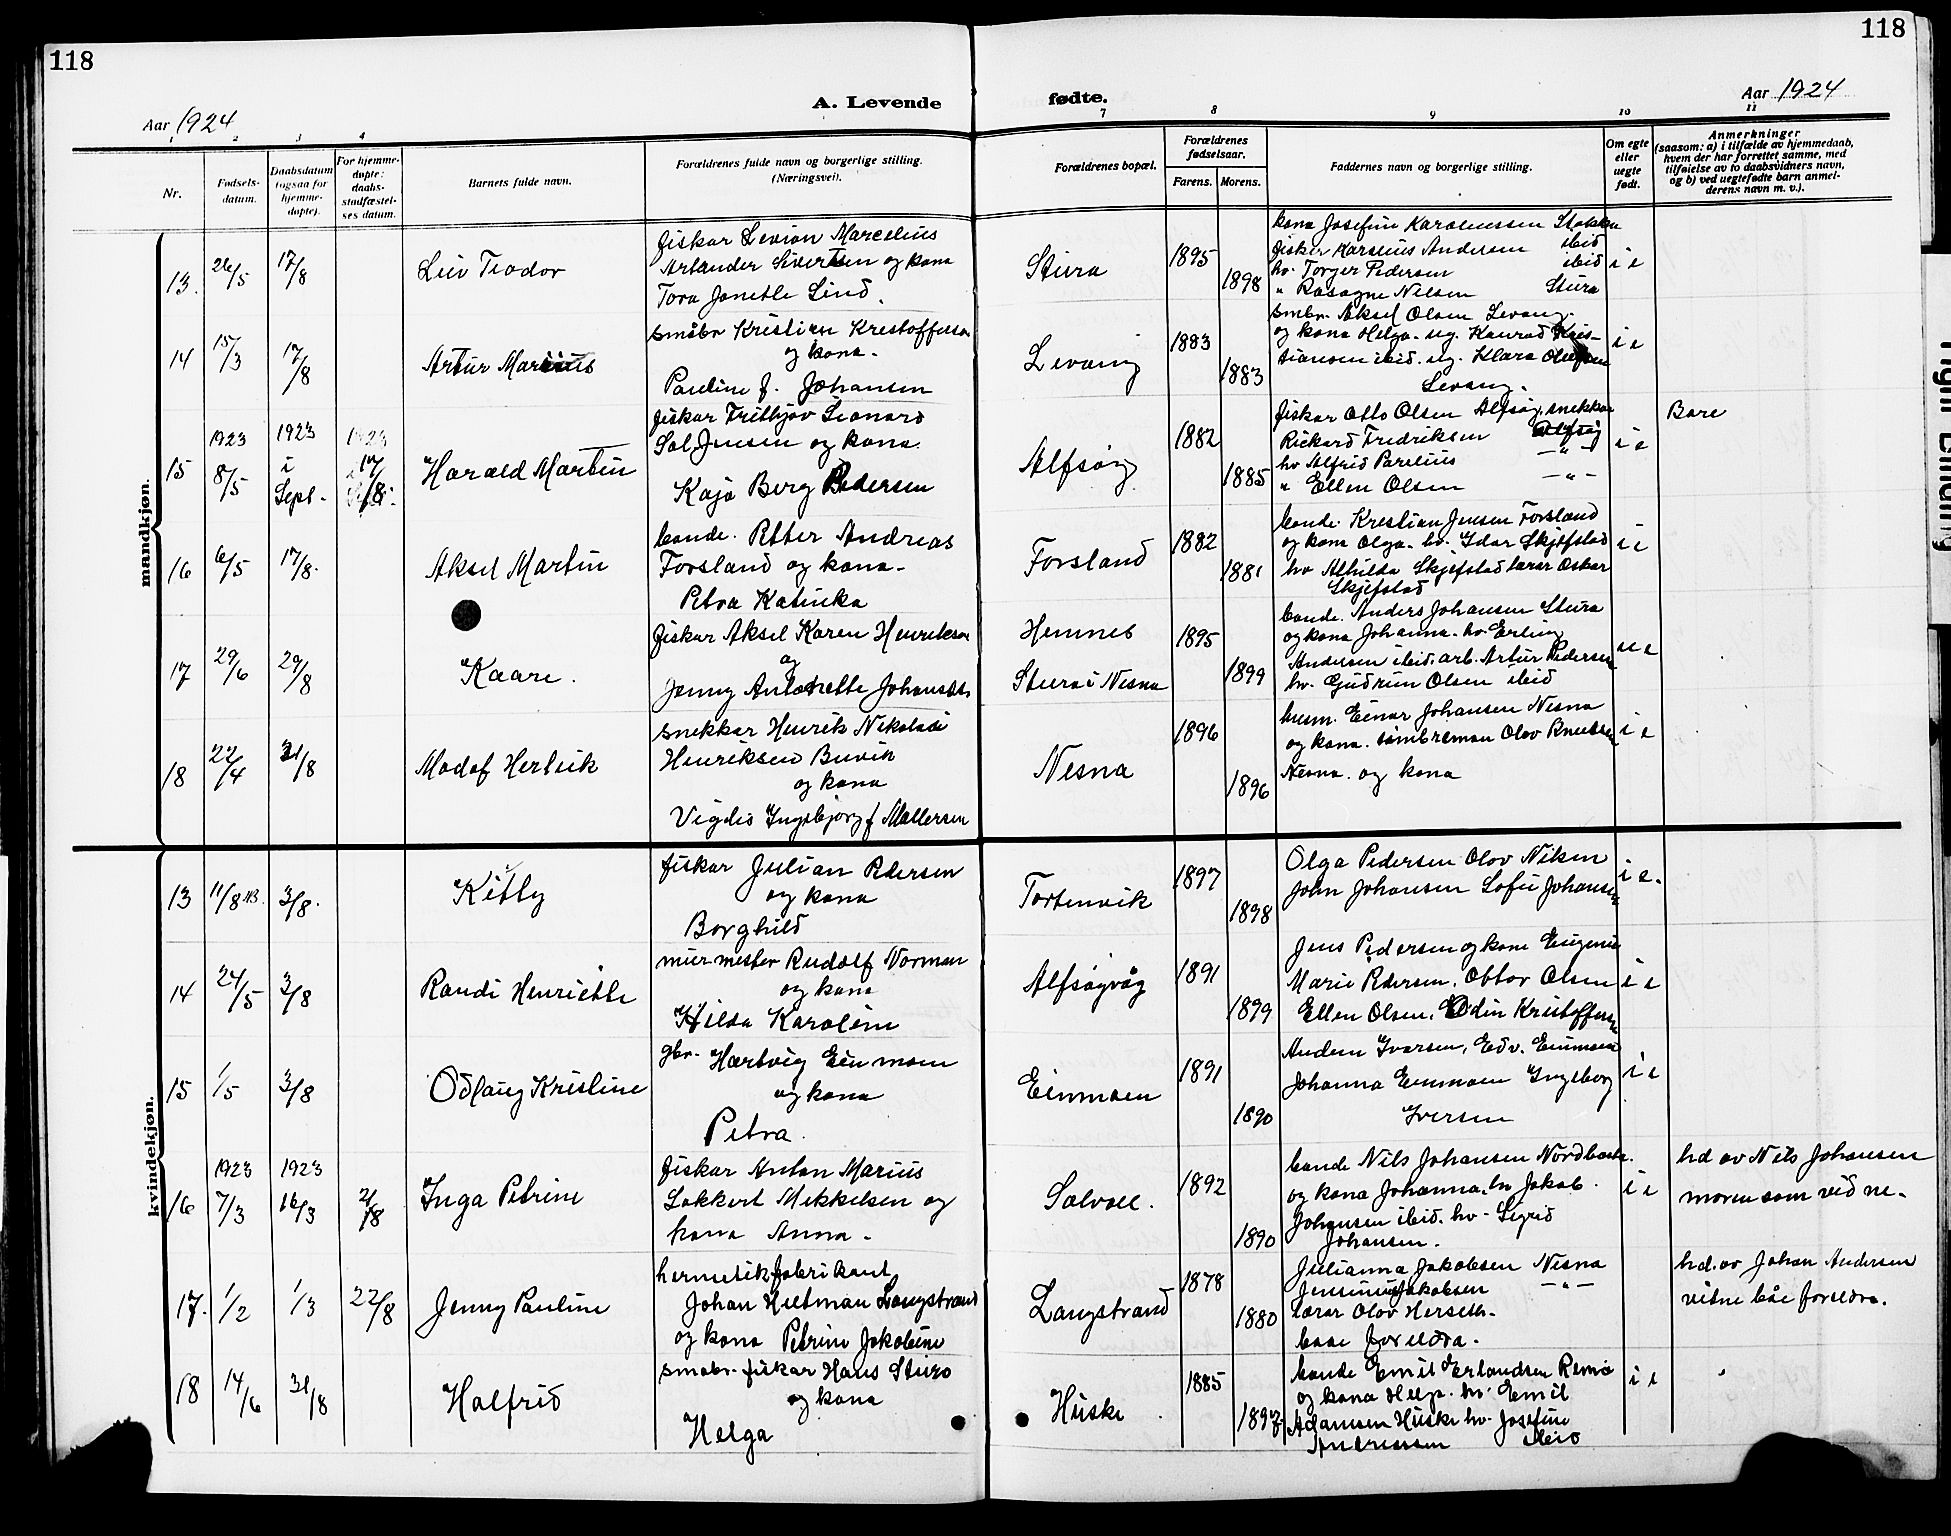 118
118
A. Levende
fødte.
Aar 1924
Aar 1924
1 2 3 4 7 8 9 10 11
Nr.
Fødsels-
datum.
Daabsdatum
(ogsaa for
hjemme-
døpte).
For hjemme-
døpte:
daabs-
stadfæstel-
ses datum.
Barnets fulde navn.
Forældrenes fulde navn og borgerlige stilling.
(Næringsvei).
Forældrenes bopæl.
Forældrenes
fødselsaar.
Farens. Morens.
Faddernes navn og borgerlige stilling.
Om egte
eller
uegte
født.
Anmerkninger
(saasom: a) i tilfælde av hjemmedaab,
hvem der har forrettet samme, med
tilføielse av to daabsvidners navn,
og b) ved uegtefødte barn anmel-
derens navn m. v.).
mandkjøn.
13. 26/5 17/8
Leiv Teodor
fiskar
Marcelius
Arlander Sivertsen og kona
Tora Janette Lind.
Stura
1895
1898
kona Josefine
fisker Karsenius Andersen ibid
hv. Torger Pedersen ibid
" Rasagne Nilsen Stura
i e
14 15/3 17/8
Artur Marius
småbr Kristian Kristoffersen
og kona.
Pauline f. Johansen
Levang
1883
1883
småbr. Aksel Olsen Levang
og kona Helga. ug. Konrad Kris-
tiansen ibid. ug. Klara
Levang.
i e
15 1923 8/5 1923 i Sept. 17/8
Harald Martin
fiskar Frithjov Leonard
Sol. Jensen og kona
Kaja Berg Pedersen
Alfsøy
1882
1885
fiskar Otto Olsen Alfsøy, snekkar
Rickard Fredriksen Alfsøy
hv Alfrid Parelius — " —
" Ellen Olsen — " —
i e
Bare
16 6/5 17/8.
Aksel Martin
bonde. Petter Andreas
Forsland og kona.
Petra Katinka
Forsland
1882
1881
bonde. Kristian Jensen Forsland
og kona Olga. hv. Idar Skjefstad
hv Alhilda Skjefstad lærar Oskar
Skjefstad
i e
17 29/6 29/8
Kaare.
fiskar Aksel Karen Henriksen
og
Jenny Antonette Johansen
Hemnes
Stura i Nesna
1895
1899
bonde. Anders Johansen Stura
og kona Johanna. hv. Erling
Andersen ibid. arb. Artur Pedersen
hv. Gudrun Olsen ibid
u e
18 22/4 31/8
Modof
snekkar Henrik Nikolai
Henriksen Buvik
og kona
Vigdis Ingebjørg f
Nesna
1896
1896
husm. Einar Johansen Nesna
og kona. tømbreman Olov Knutsen
Nesna. og kona
i e
kvindekjøn.
13 11/8 3/8.
Kitty
fiskar Julian Pedersen
og kona
Borghild
Tortenvik
1897
1898
Olga Pedersen Olov Nilsen
John Johansen Sofie Johansen
i e.
14 24/5 3/8
Randi Henriette
murmester Rudolf Norman
og kona
Hilda Karoline
Alfsøyvåg
1891
1899
Jens Pedersen og kone Eugenie
Marie Pedersen, Ottar Olsen
Ellen Olsen, Edin Kristoffersen
i e
15 1/5 3/8
Odlaug Kristine
gbr. Hartvig Einmoen
og kona
Petra.
Einmoen
1891
1890
Anders Ivarsen, Edv. Einmoen
Johanna Einmoen Ingeborg
Iversen
i e
16 1923 7/3 1923 16/3 21/8
Inga Petrine
fiskar Anton Marius
Lokkert Mikkelsen og
kona Anna.
Solvoll.
1892
1890
bonde Nils Johansen
og kona Johanna, hv Jakob.
Johansen ibid. hv. Sigrid
Johansen.
i e
hd av Nils Johansen
moren som
17. 1/2 1/3 22/8
Jenny Pauline
hermetikfabrikant
Johan Hultman Langstrand
og kona Petrine Jakobine
Langstrand
1878
1880
Julianna Jakobsen Nesna
Jakobsen — " —
lærar Olov Herseth.
baae foreldra.
hd. av Johan Andersen
vitne båe foreldra.
18 14/6 31/8
Halfrid
småbr. fiskar Hans Sturo
og kona
Helga
Huske
1885
bonde Emil Erlandsen Remø
og kona Helga. hv. Emil
Adamsen Huske hv. Josefine
Andreassen ibid
i e